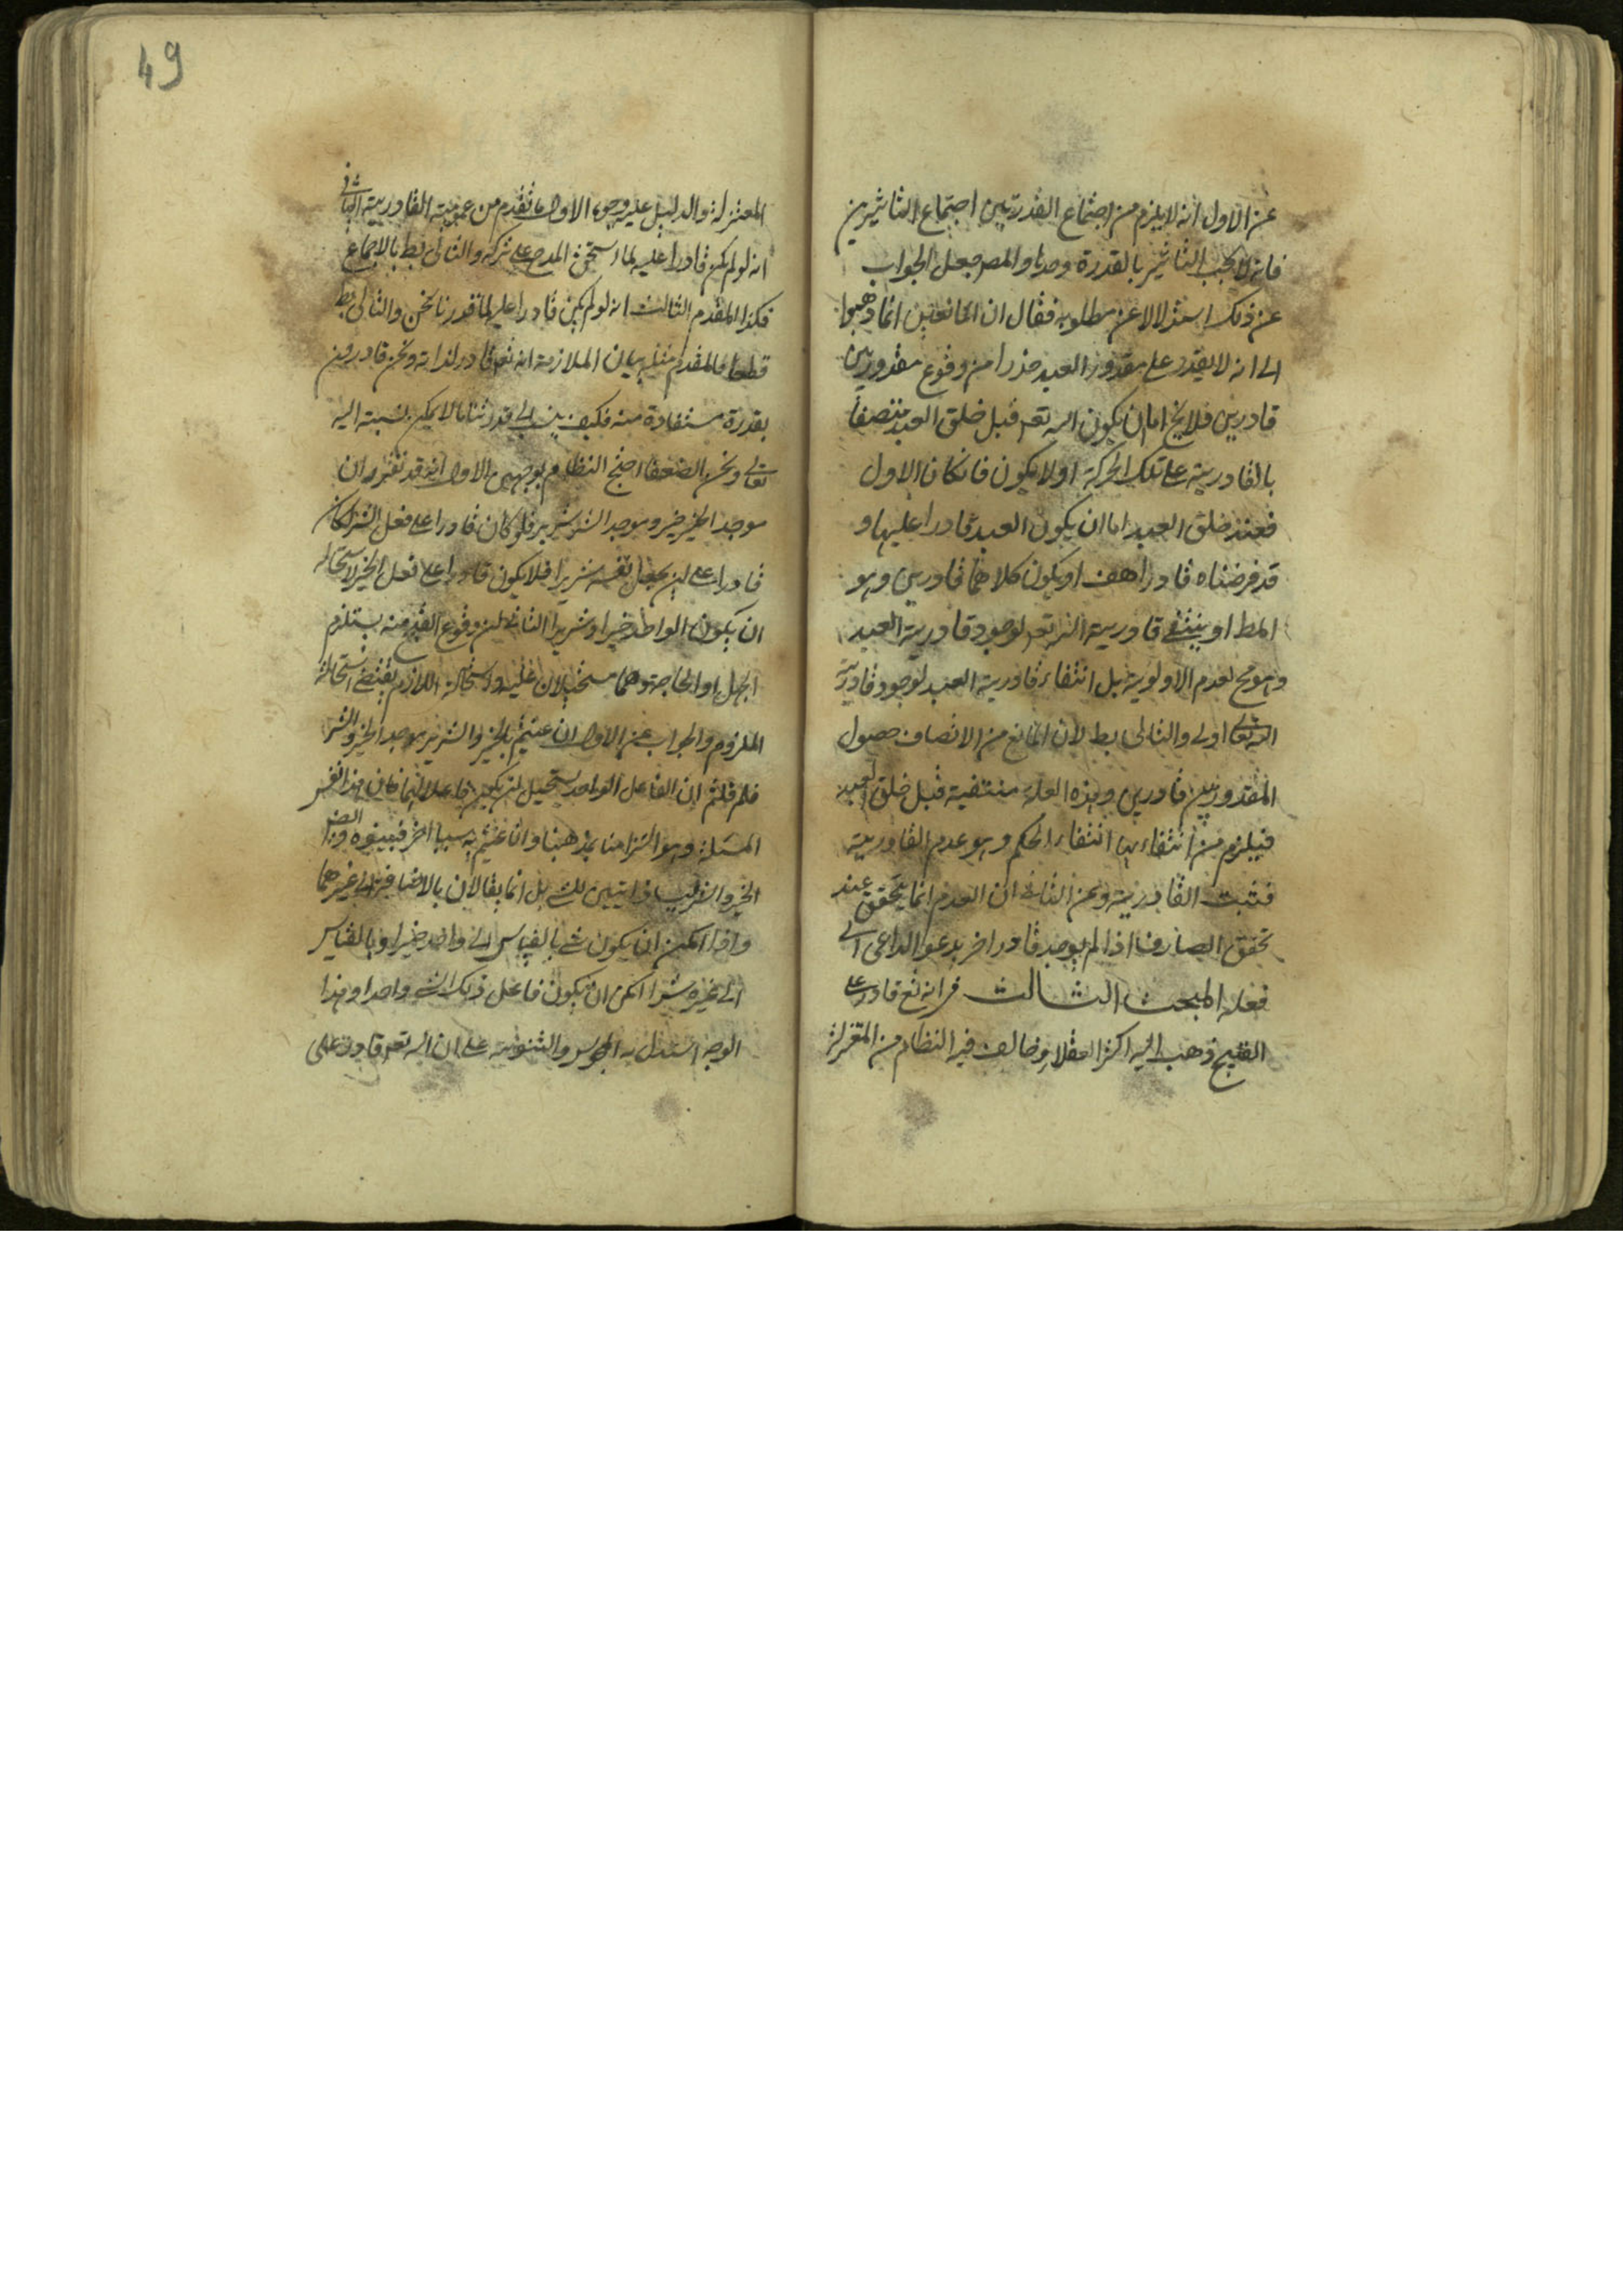 عن الاول انه لا يلزم من اجتماع القدرتين اجتماع التاثيرين
فانه لا يجب التاثير بالقدرة وحدها والمص جعل الجواب
عن ذلك استدلالا عن مطلوبه فقال ان المانعين انما ذهبوا
الى انه لا يقدر على مقدور العبد حذرا من وقوع مقدور بين
قادرين فلا يخ اما ان يكون الله تعـ قبل خلق العبد متصفا
بالقادرية على تلك الحركة او لا يكون فان كان الاول
فعند خلق العبد اما ان يكون العبد قادرا عليها و
قد فرضناه قادرا هف او يكون كلاهما قادرين وهو
المط او ينتفى قادرية الله تعـ لوجود قادرية العبد
وهو مح لعدم الاولوية بل انتفاء قادرية العبد لوجود قادرية
الله تعالى اولى والتالى بط لان المانع من الاتصاف حصول
المقدور بين قادرين وهذه العلة منتفية قبل خلق العبد
فيلزم من انتفاءها انتفاء الحكم وهو عدم القادرية
فثبت القادرية وعن الثانى ان العدم انما يتحقق عند
تحقق الصارف اذا لم يوجد قادر اخر يدعو الداعى الى
فعله المبحث الثالث فى انه تع قادر على
القبيح ذهب اليه اكثر العقلاء وخالف فيه النظام من المعتزلة
49
المعتزلة والدليل عليه وجوه الاول ما تقدم من عمومية القادرية الثانى
انه لو لم يكن قادرا عليه لما استحق المدح على تركه والتالى بط بالاجماع
فكذا المقدم الثالث انه لو لم يكن قادرا عليه لما قدرنا نحن والتالى بط
قطعا فالمقدم مثله بيان الملازمة انه تعـ قادر لذاته ونحن قادرون
بقدرة مستفادة منه فكيف ينسب الى قدرتنا ما لا يمكن نسبته اليه
تعالى ونحن الضعفا احتج النظام بوجهين الاول انه قد تقرر ان
موجد الخير خير وموجد الشر شرير فلو كان قادرا على فعل الشر لكان
قادرا على ان يجعل نفسه شريرا فلا يكون قادرا على فعل الخير لاستحالة
ان يكون الواحد خيرا وشريرا الثانى ان وقوع القبيح منه يستلزم
الجهل او الحاجة وهما مستحيلان عليه واستحالة اللازم يقتضى استحالة
الملزوم والجواب عن الاول ان عنيتم بالخير والشرير موجد الخير والشر
فلم قلتم ان الفاعل الواحد يستحيل ان يكون فاعلا لهما فان هذا نفس
المسئلة وهو التزامنا بمذهبنا وان عنيتم به سببا اخر فبينوه وايضا
الخير والشر ليسا ذاتيين للشى بل انما يقالان بالاضافة الى غيرهما
واذا امكن ان يكون شى بالقياس الى واحد خيرا وبالقياس
الى غيره شرا امكن ان يكون فاعل ذلك الشى واحدا وهذا
الوجه استدل به المجوس والثنوية على ان الله تعـ قادر على